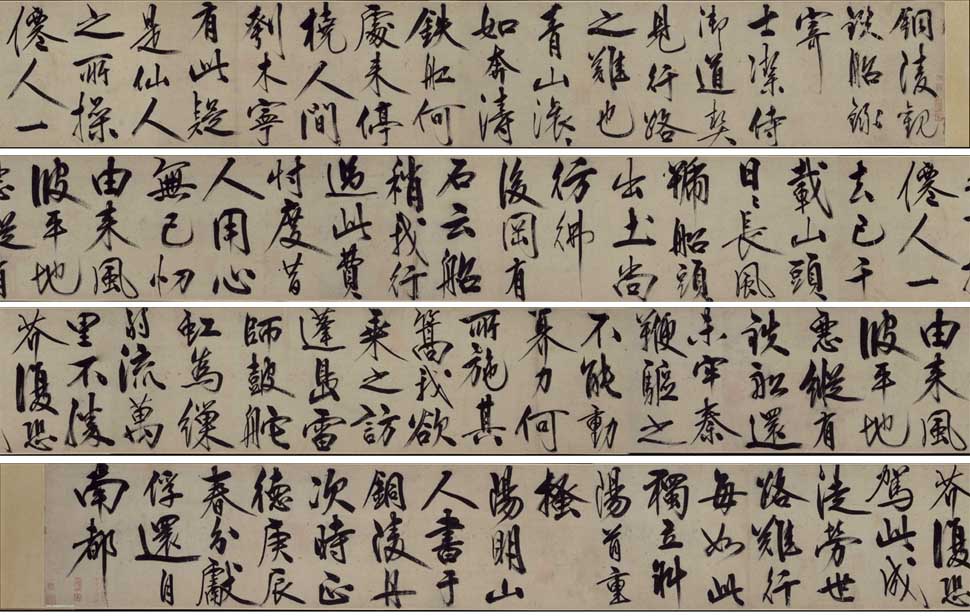 銅陵觀
鉄船錄
寄
士潔侍
御道契
見行路
之難也
青山滾〻
如奔濤
鉄船何
處来停
橈人間
刳木寧
有此疑
是仙人
之所操
僊人一
僊人一
去已千
載山頭
日〻長風
號船頭
出土尚
彷彿
後岡有
石云船
稍我行
過此費
忖度昔
人用心
無已忉
由来風
波平地
由来風
波平地
惡縱有
鉄船還
未牢秦
鞭驅之
不能動
奡力何
所施其
篙我欲
乘之訪
蓬島雷
師鼓舵
虹為繅
弱流萬
里不勝
芥復恐
芥復恐
駕此成
徒勞世
路難行
每如此
獨立斜
陽首重
搔
陽明山
人書于
銅陵舟
次時正
德庚辰
春分獻
俘還自
南都